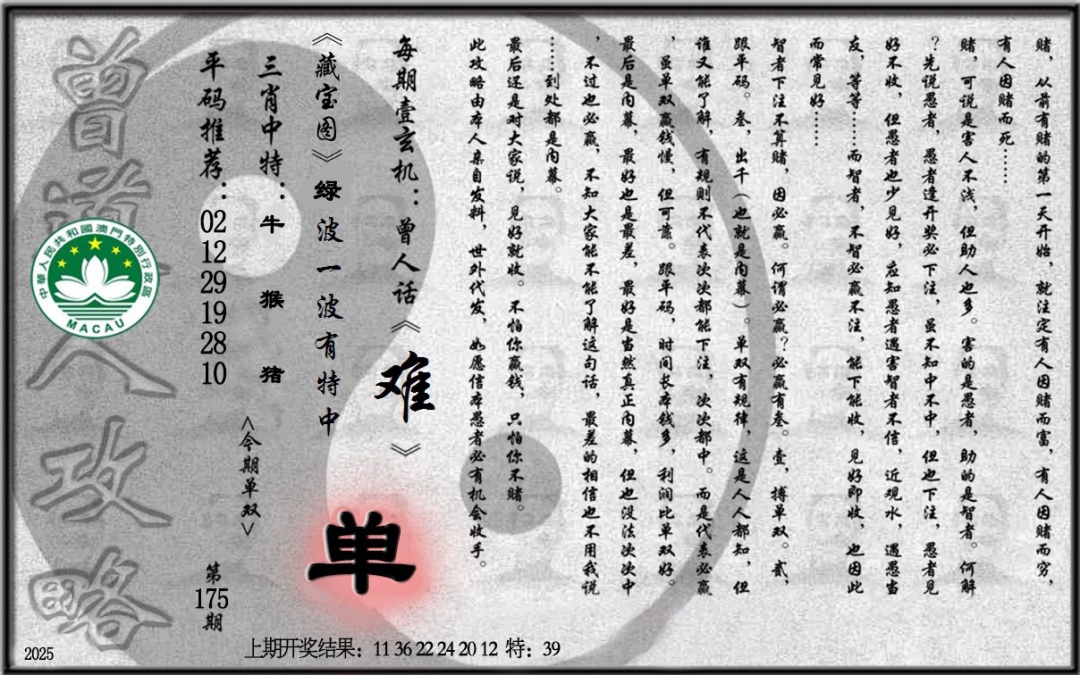 赌，从前有赌的第一天开始，就注定有人因赌而富，有人因赌而穷，
有人因赌而死……
赌，可说是害人不浅，但助人也多。害的是愚者，助的是智者。何解
？先说愚者，愚者逢开奖必下注，虽不知中不中，但也下注，愚者见
好不收，但愚者也少见好，应知愚者遇害智者不信，近观水，遇愚当
友，等等……而智者，不智必赢不注，能下能收，见好即收，也因此
而常见好……
智者下注不算赌，因必赢。何谓必赢？必赢有叁。壹，搏单双。贰，
跟平码。叁，出千（也就是内幕）。单双有规律，这是人人都知，但
谁又能了解，有规则不代表次次都能下注，次次都中。而是代表必赢
，虽单双赢钱慢，但可靠。跟平码，时间长本钱多，利润比单双好。
最后是内幕，最好也是最差，最好是当然真正内幕，但也没法次次中
，不过也必赢，不知大家能不能了解这句话，最差的相信也不用我说
……到处都是内幕。
最后还是对大家说，见好就收。不怕你赢钱，只怕你不赌。
此攻略由本人亲自发料，世外代发，如愿信本愚者必有机会收手。
每期壹玄机：曾人话《难》
《藏宝图》绿波一波有特中
单
三肖中特：牛 猴 猪
<今期单双>
平码推荐：02 12 29 19 28 10
第175期
曾道人攻略
中華人民共和國澳門特別行政區
MACAU
2025
上期开奖结果：11 36 22 24 20 12 特：39